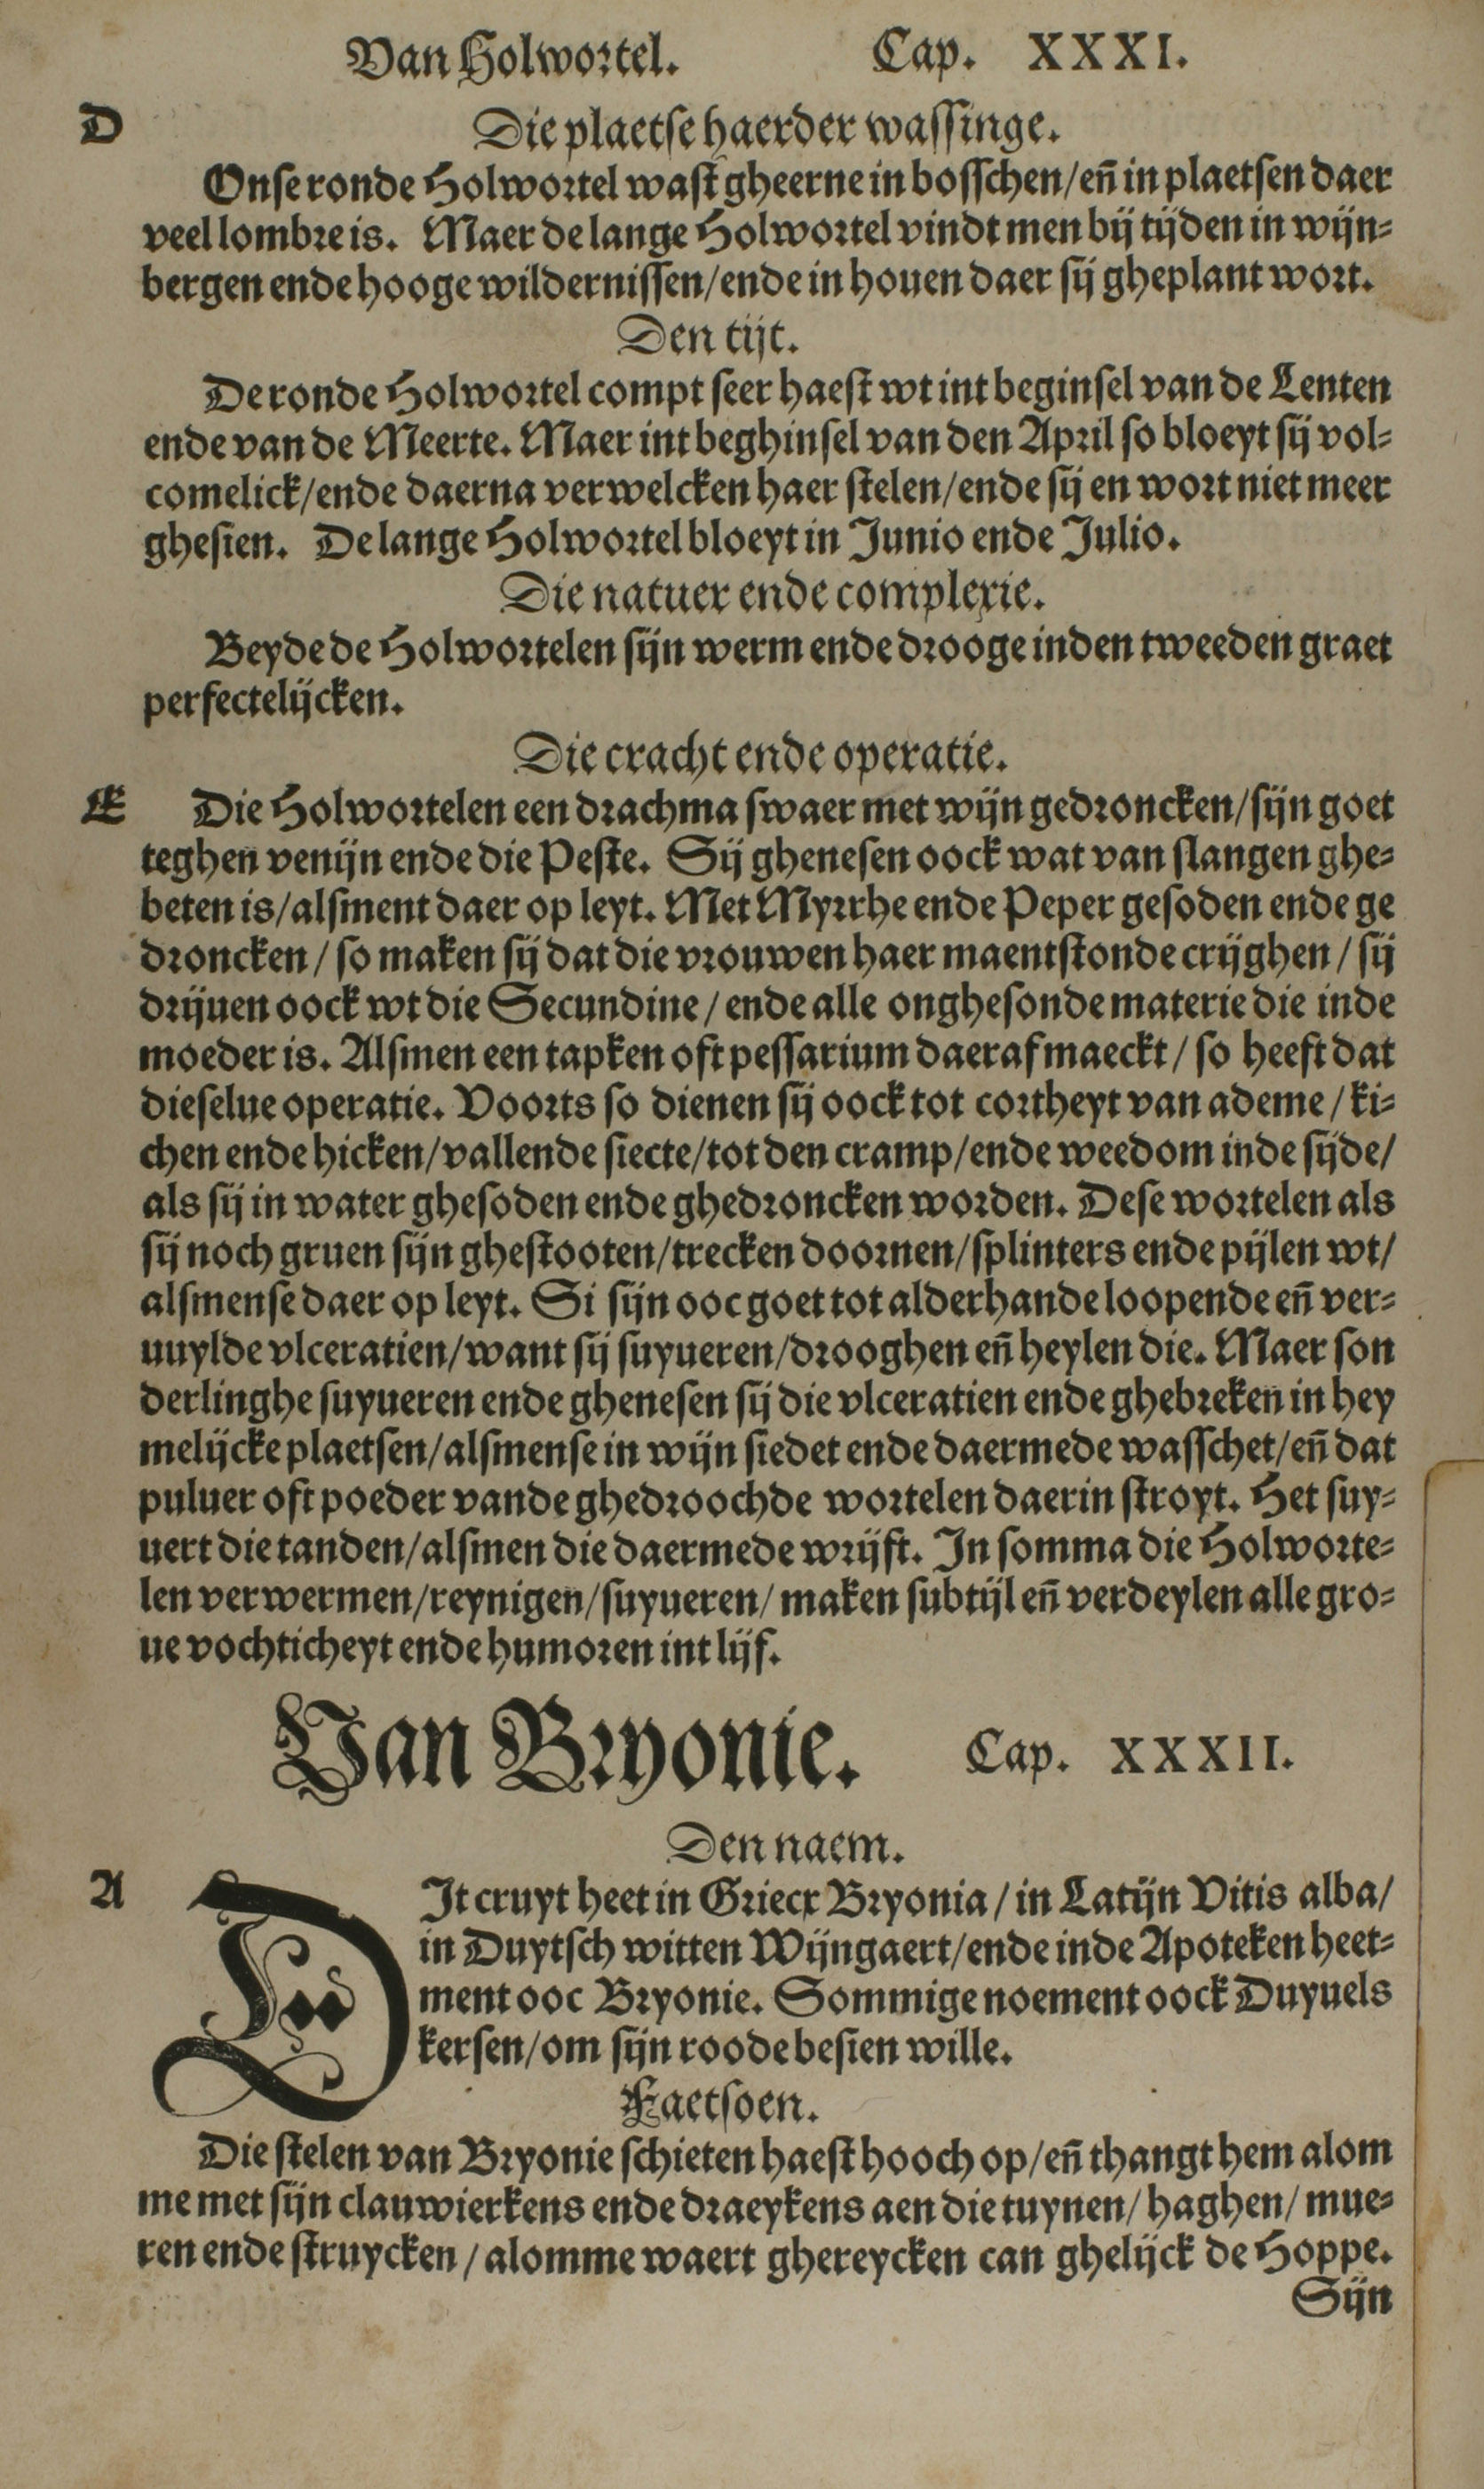 Van Holwortel. Cap. XXXI.
D
Die plaetse haerder wassinge.
Onse ronde Holwortel wast gheerne in bosschen/ eñ in plaetsen daer
veel lombre is. Maer de lange Holwortel vindt men bij tijden in wijn-
bergen ende hooge wildernissen/ ende in houen daer sij gheplant wort.
Den tijt.
De ronde Holwortel compt seer haest wt int beginsel van de Lenten
ende van de Meerte. Maer int beghinsel van den April so bloeyt sij vol-
comelick/ ende daerna verwelcken haer stelen/ ende sij en wort niet meer
ghesien. De lange Holwortel bloeyt in Junio ende Julio.
Die natuer ende complexie.
Beyde de Holwortelen sijn werm ende drooge inden tweeden graet
perfectelijcken.
Die cracht ende operatie.
E Die Holwortelen een drachma swaer met wijn gedroncken/ sijn goet
teghen venijn ende die Peste. Sij ghenesen oock wat van slangen ghe-
beten is/ alsment daer op leyt. Met Myrrhe ende Peper gesoden ende ge
droncken/ so maken sij dat die vrouwen haer maentstonde crijghen/ sij
drijuen oock wt die Secundine/ ende alle onghesonde materie die inde
moeder is. Alsmen een tapken oft pessarium daeraf maeckt/ so heeft dat
dieselue operatie. Voorts so dienen sij oock tot cortheyt van ademe/ ki-
chen ende hicken/ vallende siecte/ tot den cramp/ ende weedom inde sijde/
als sij in water ghesoden ende ghedroncken worden. Dese wortelen als
sij noch gruen sijn ghestooten/ trecken doornen/ splinters ende pijlen wt/
alsmense daer op leyt. Si sijn ooc goet tot alderhande loopende eñ ver-
uuylde vlceratien/ want sij suyueren/ drooghen eñ heylen die. Maer son
derlinghe suyueren ende ghenesen sij die vlceratien ende ghebreken in hey
melijcke plaetsen/ alsmense in wijn siedet ende daermede wasschet/ eñ dat
puluer oft poeder vande ghedroochde wortelen daerin stroyt. Het suy-
uert die tanden/ alsmen die daermede wrijft. In somma die Holworte-
len verwermen/ reynigen/ suyueren/ maken subtijl eñ verdeylen alle gro-
ue vochticheyt ende humoren int lijf.
Van Bryonie. Cap. XXXII.
Den naem.
A
DIt cruyt heet in Griecx Bryonia/ in Latijn Vitis alba/
in Duytsch witten Wijngaert/ ende inde Apoteken heet-
ment ooc Bryonie. Sommige noement oock Duyuels
kersen/ om sijn roode besien wille.
Faetsoen.
Die stelen van Bryonie schieten haest hooch op/ eñ thangt hem alom
me met sijn clauwierkens ende draeykens aen die tuynen/ haghen/ mue-
ren ende struycken/ alomme waert ghereycken can ghelijck de Hoppe.
Sijn